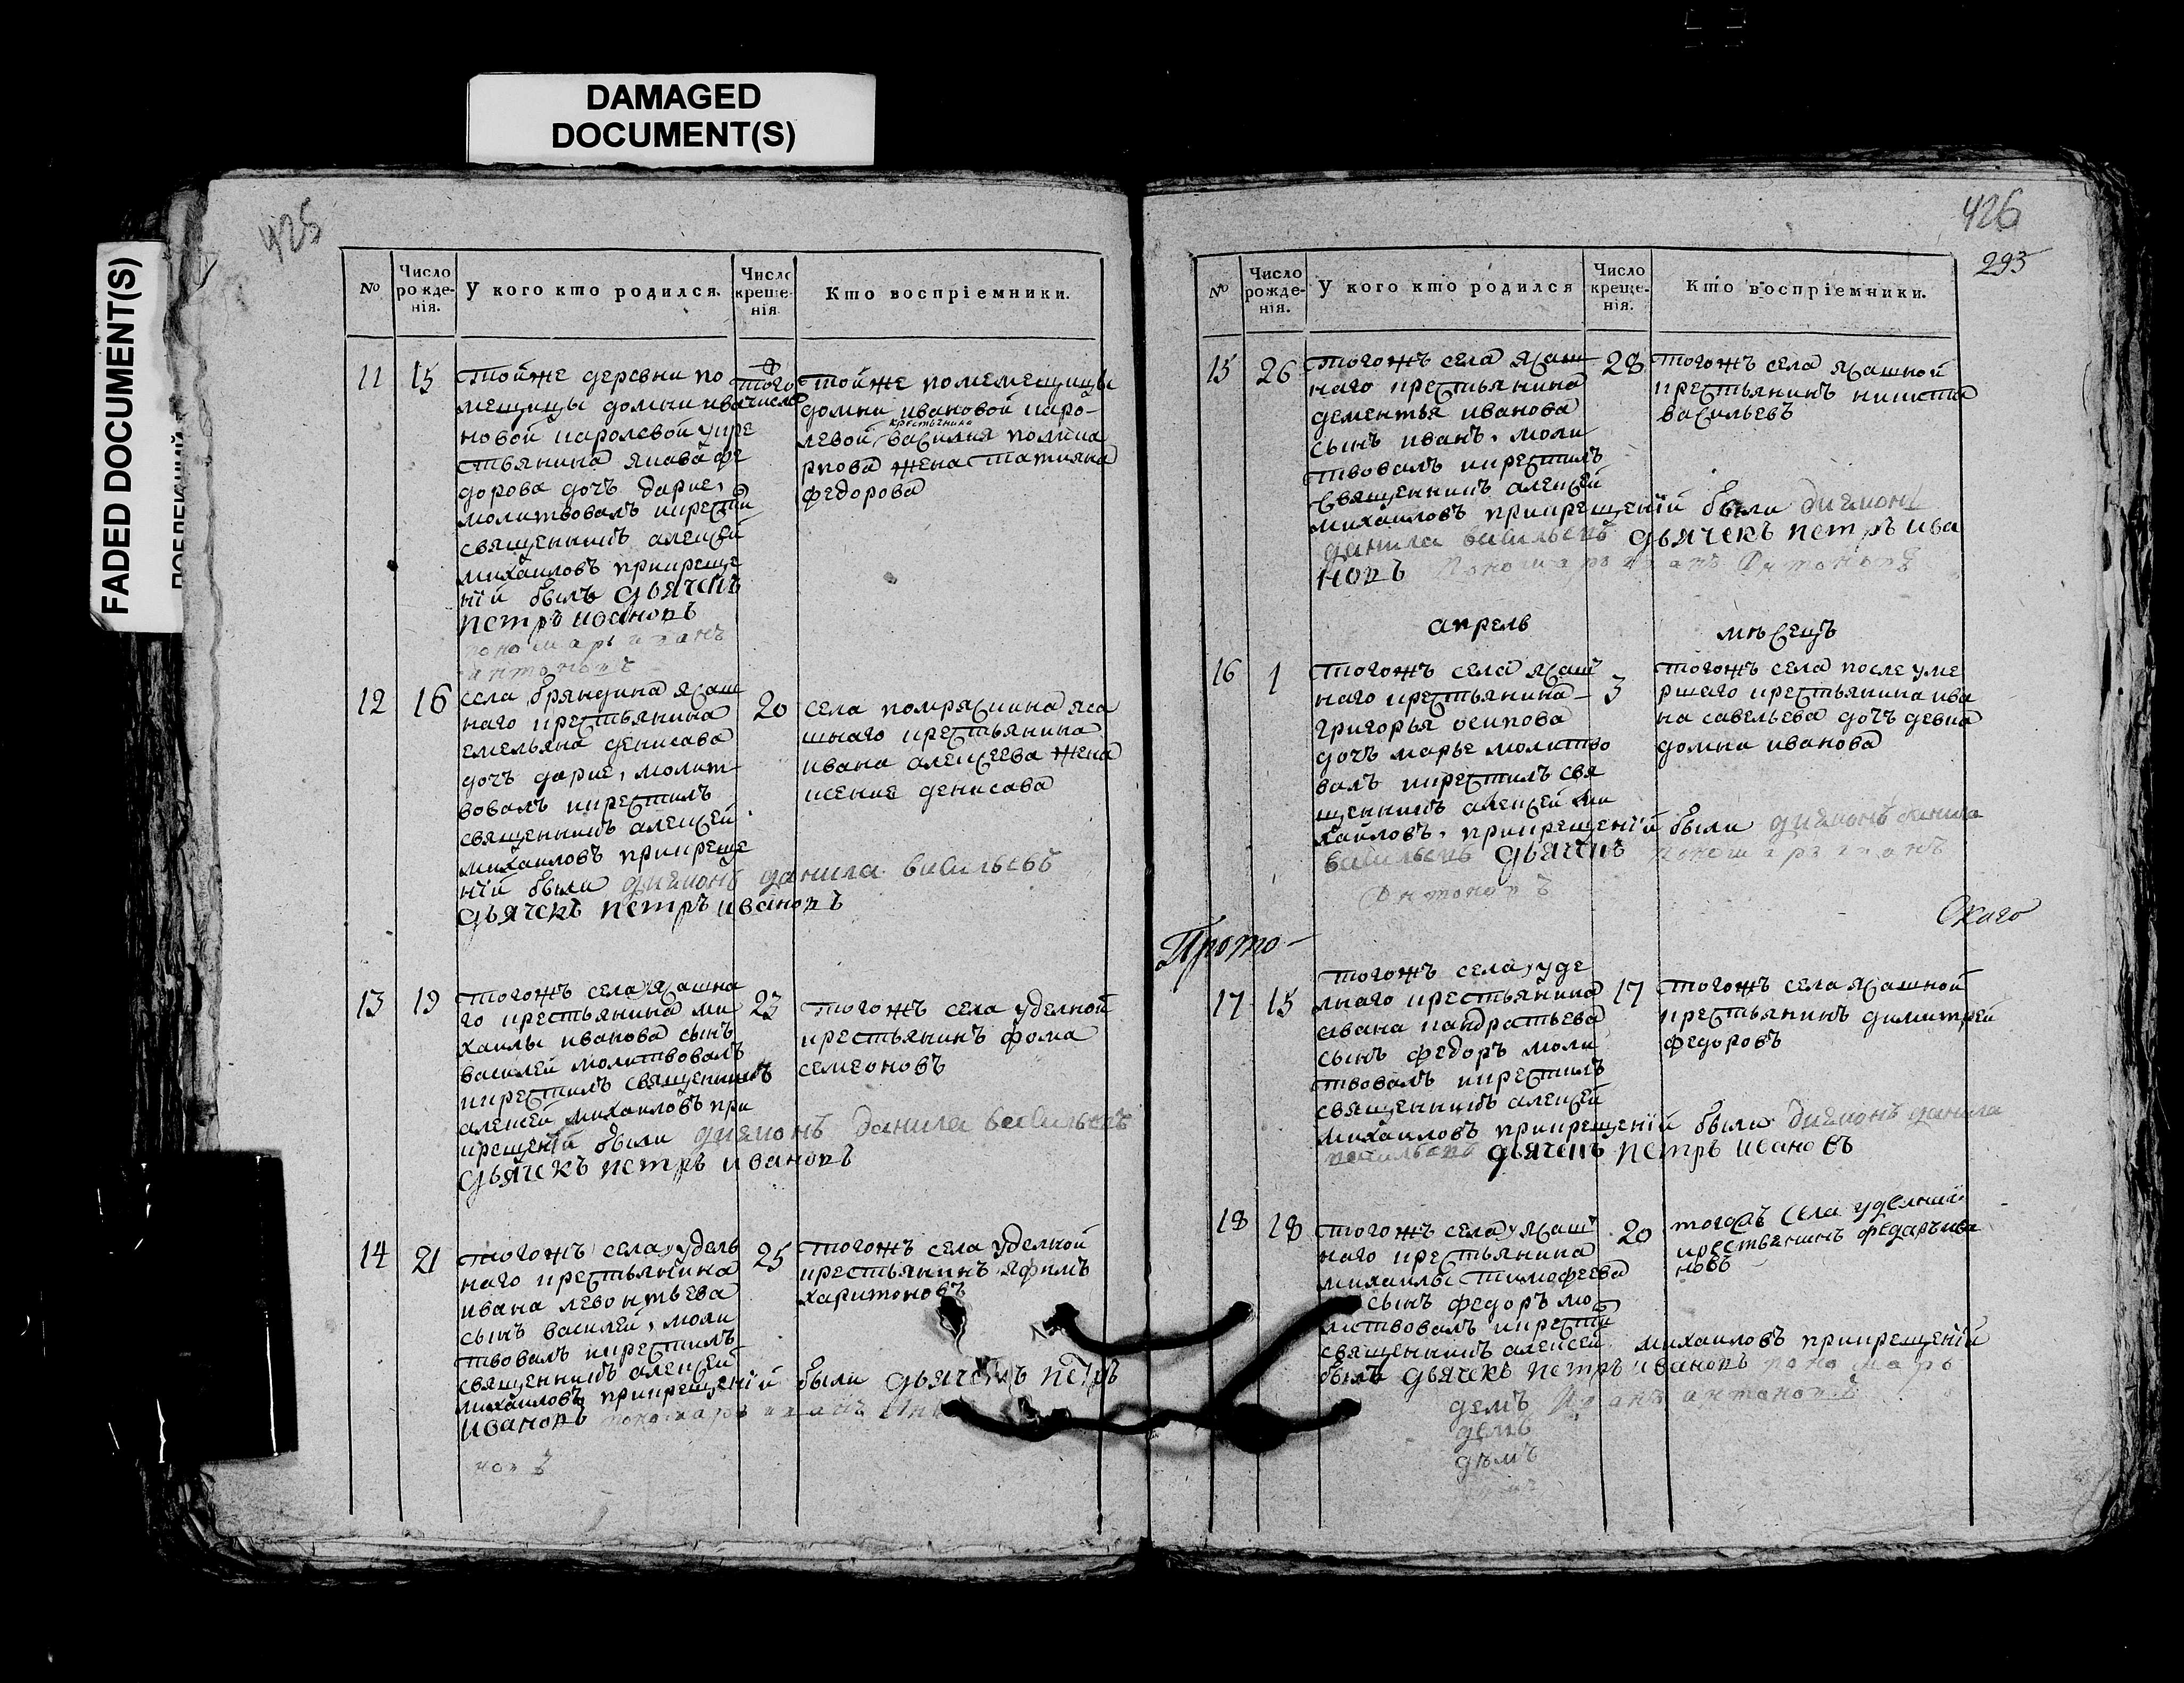 DAMAGED
DOCUMENT(S)
FADED DOCUMENT(S)
425
№
Число рожденія.
У кого кто родился.
Число крещенія
Кто воспріемники.
11
15
тойже деревни по
мещицы домни ива
новой королевой укре
стьянина якава фе
дорова дочъ дарие,
молитвовалъ икрести
священникъ алексей
михаиловъ прикреще
ніи былъ дьячекъ
петръ ивановъ
пономарь иванъ
антоновъ
того
числа
тойже помемещицы
домни ивановой каро-
левой крестьянина василия полика
рпова жена татияна
федорова
12
16
села бряндина ясаш
наго крестьянина
емельяна денисава
дочъ дарие, молит
вовалъ икрестилъ
священникъ алексей
михаиловъ прикреще
ніи были диаконъ данила васильевъ
дьячекъ петръ ивановъ
20
села помряскина яса
шнаго крестьянина
ивана алексеева жена
ксение денисава
13
19
тогожъ села ясашна
го крестьянина ми
хаилы иванова сынъ
василей молитвовалъ
икрестилъ священникъ
алексей михаиловъ при
крещеніи были диаконъ данила васильевъ
дьячекъ петръ ивановъ
23
тогожъ села уделной
крестьянинъ фома
семеновъ
14
21
тогожъ села удель
наго крестьянина
ивана левонтьева
сынъ василей, моли
твовалъ икрестилъ
священникъ алексей
михаиловъ прикрещеніи были дьячекъ петръ
ивановъ пономарь иванъ
новъ
25
тогожъ села уделной
крестьянинъ яфимъ
харитоновъ
426
293
№
Число рожденія.
У кого кто родился
Число крещенія.
Кто воспріемники.
15
26
тогожъ села ясаш
наго крестьянина
дементья иванова
сынъ иванъ, моли
твовалъ икрестилъ
священникъ алексей
михаиловъ прикрещеніи были диаконъ
данила васильевъ дьячекъ петръ ива
новъ пономарь иванъ антоновъ
28
тогожъ села ясашной
крестьянинъ никита
васильевъ
апрель месецъ
16
1
тогожъ села ясаш
наго крестьянина
григорья осипова
дочъ марье молитво
валъ икрестилъ свя
щенникъ алексей ми
хаиловъ, прикрещеніи были диаконъ данила
васильевъ дьячекъ пономарь иванъ
антоновъ
3
тогожъ села после уме
ршаго крестьянина ива
на савельева дочъ девка
домна иванова
Прото-
17
15
тогожъ села уде
лнаго крестьянина
ивана кандратьева
сынъ федоръ моли
твовалъ икрестилъ
священникъ алексей
михаиловъ прикрещеніи были диаконъ данила
васильевъ дьячекъ петръ ивановъ
17
тогожъ села ясашной
крестьянинъ димитрей
федоровъ
18
18
тогожъ села ясаш
наго крестьянина
михаилы тимофеева
сынъ федоръ мо
литвовалъ икрести
священникъ алексей михаиловъ прикрещеніи
былъ дьячекъ петръ ивановъ пономарь
иванъ антоновъ
20
тогожъ села уделний
крестьянинъ федаръ ива
новъ